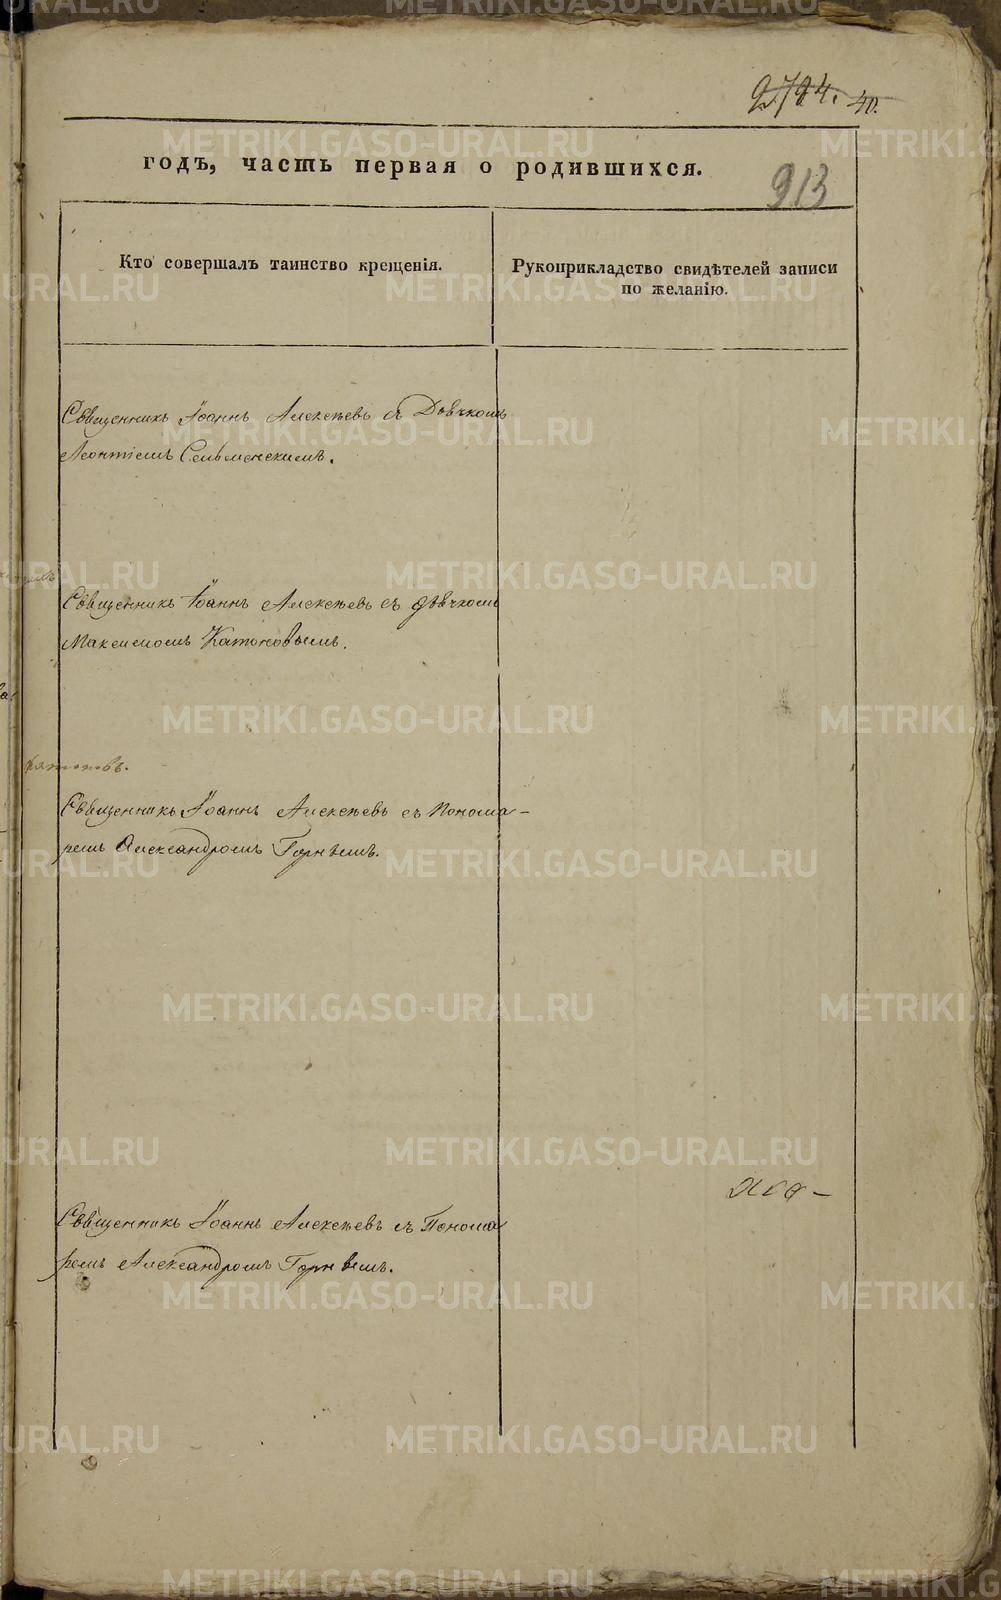 40.
годъ, часть первая о родившихся.
913
Кто совершалъ таинство крещенія.
Рукоприкладство свидѣтелей записи
по желанію.
Священникъ Іоаннъ Алексѣевъ съ Дьячкомъ
Леонтіемъ
Священникъ Іоаннъ Алексѣевъ съ дьячкомъ
Максимомъ
Священникъ Іоаннъ Алексѣевъ съ Понома-
ремъ Александромъ Горнымъ.
Священникъ Іоаннъ Алексѣевъ съ Понома
ремъ Александромъ Горнымъ.
METRIKI.GASO-URAL.RU